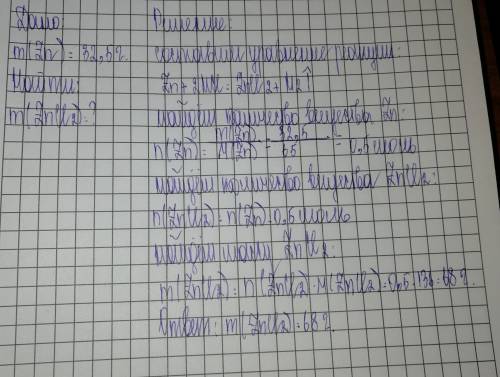 Дано:
m(Zn) = 32,5 г.
Найти:
m(ZnCl2) - ?
Решение:
составим уравнение реакции:
Zn + 2HCl = ZnCl2 + H2↑
найдём количество вещества Zn:
n(Zn) = m(Zn) / M(Zn) = 32,5 / 65 = 0,5 моль
найдём количество вещества ZnCl2:
n(ZnCl2) = n(Zn) = 0,5 моль
найдём массу ZnCl2:
m(ZnCl2) = n(ZnCl2) · M(ZnCl2) = 0,5 · 136 = 68 г.
Ответ: m(ZnCl2) = 68 г.